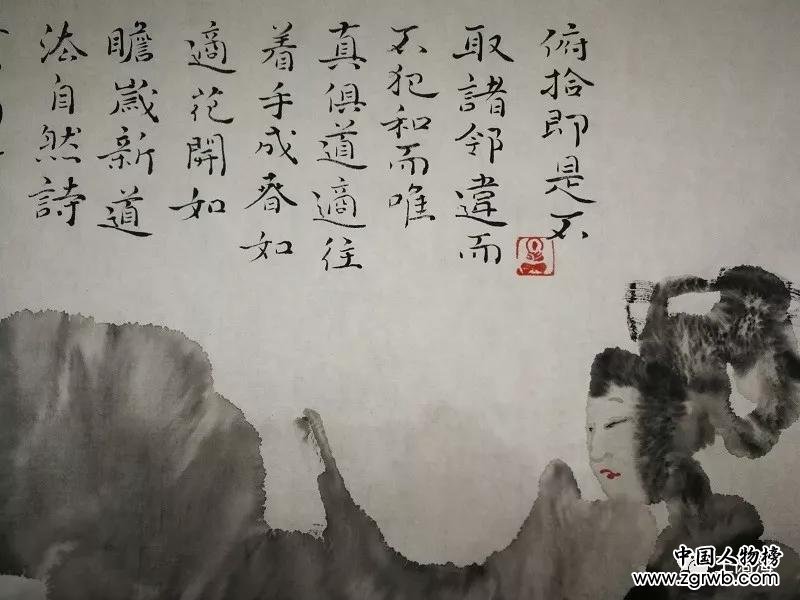 俯拾即是不
取諸邻違而
不犯和而唯
真俱道適往
着手成春如
適花開如
瞻歲新道
法自然詩
中国人物榜
www.zgrwb.com